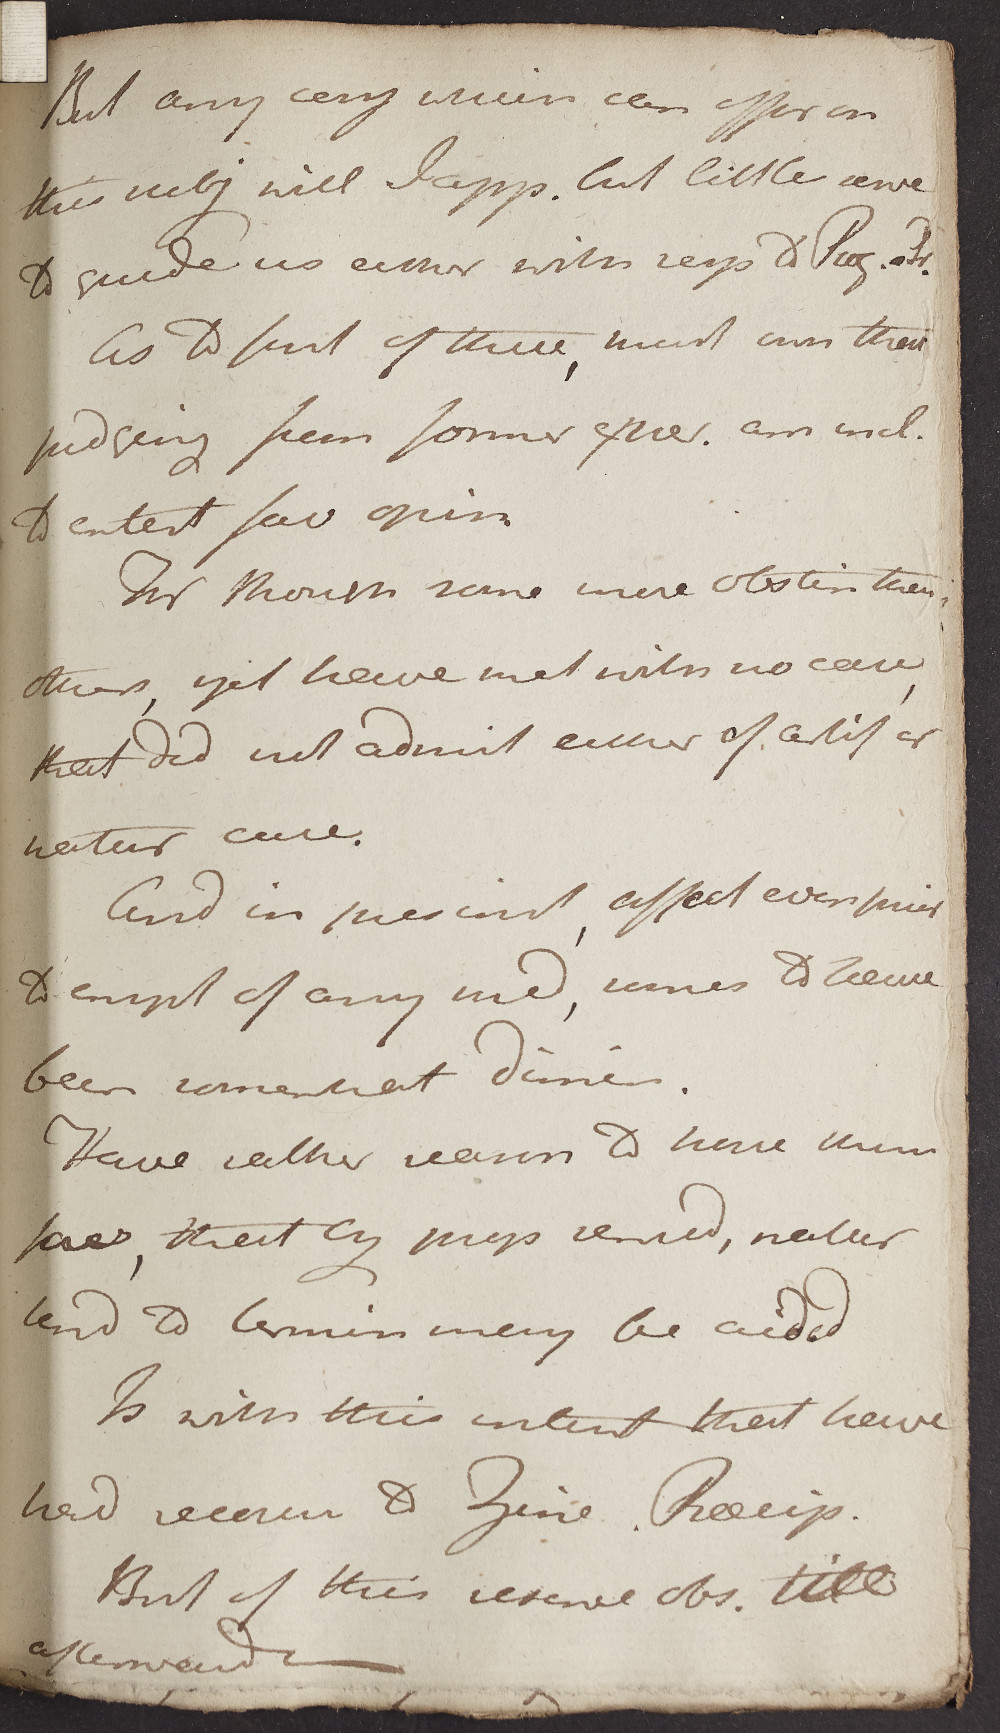 But any thing which can offer on
this subj will I app. but little serve
to guide us either with resp to Prog. or Pr.
As to first of these, must own that
judging from former exper. am incl.
to entert fav opin
For though some more obstin than
others, yet have met with no case,
that did not admit either of artif or
natur cure.
And in pres inst, affect even prior
to empl of any med, seems to have
been somewhat dimin.
Have rather reason to hope them
fore, that by prop remed, natur
tend to termin may be aided
Is with this intent that have
had recour to Zinc. Præcip.
But of this reserve obs. till
afterward